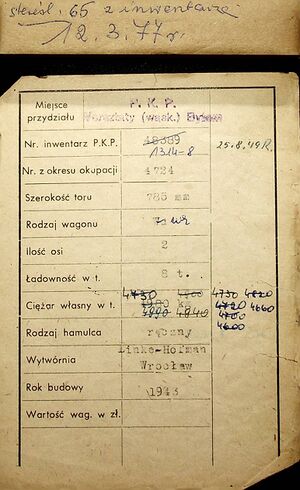 skreśl. 65 z inwentarza
12.3.77 r.
Miejsce przydziału P. K. P.
Warsztaty (wąsk.) Bytom
Nr. inwentarz P.K.P. 48389
1314-8 25.8.49 R.
Nr. z okresu okupacji 4724
Szerokość toru 785 mm
Rodzaj wagonu
Ilość osi 2
Ładowność w t. 8 t.
Ciężar własny w t. 4750 4750 4820
kg 4720 4660
4890 4840 4700
4600
Rodzaj hamulca ręczny
Wytwórnia Linke-Hofman
Wrocław
Rok budowy 1943
Wartość wag. w zł.